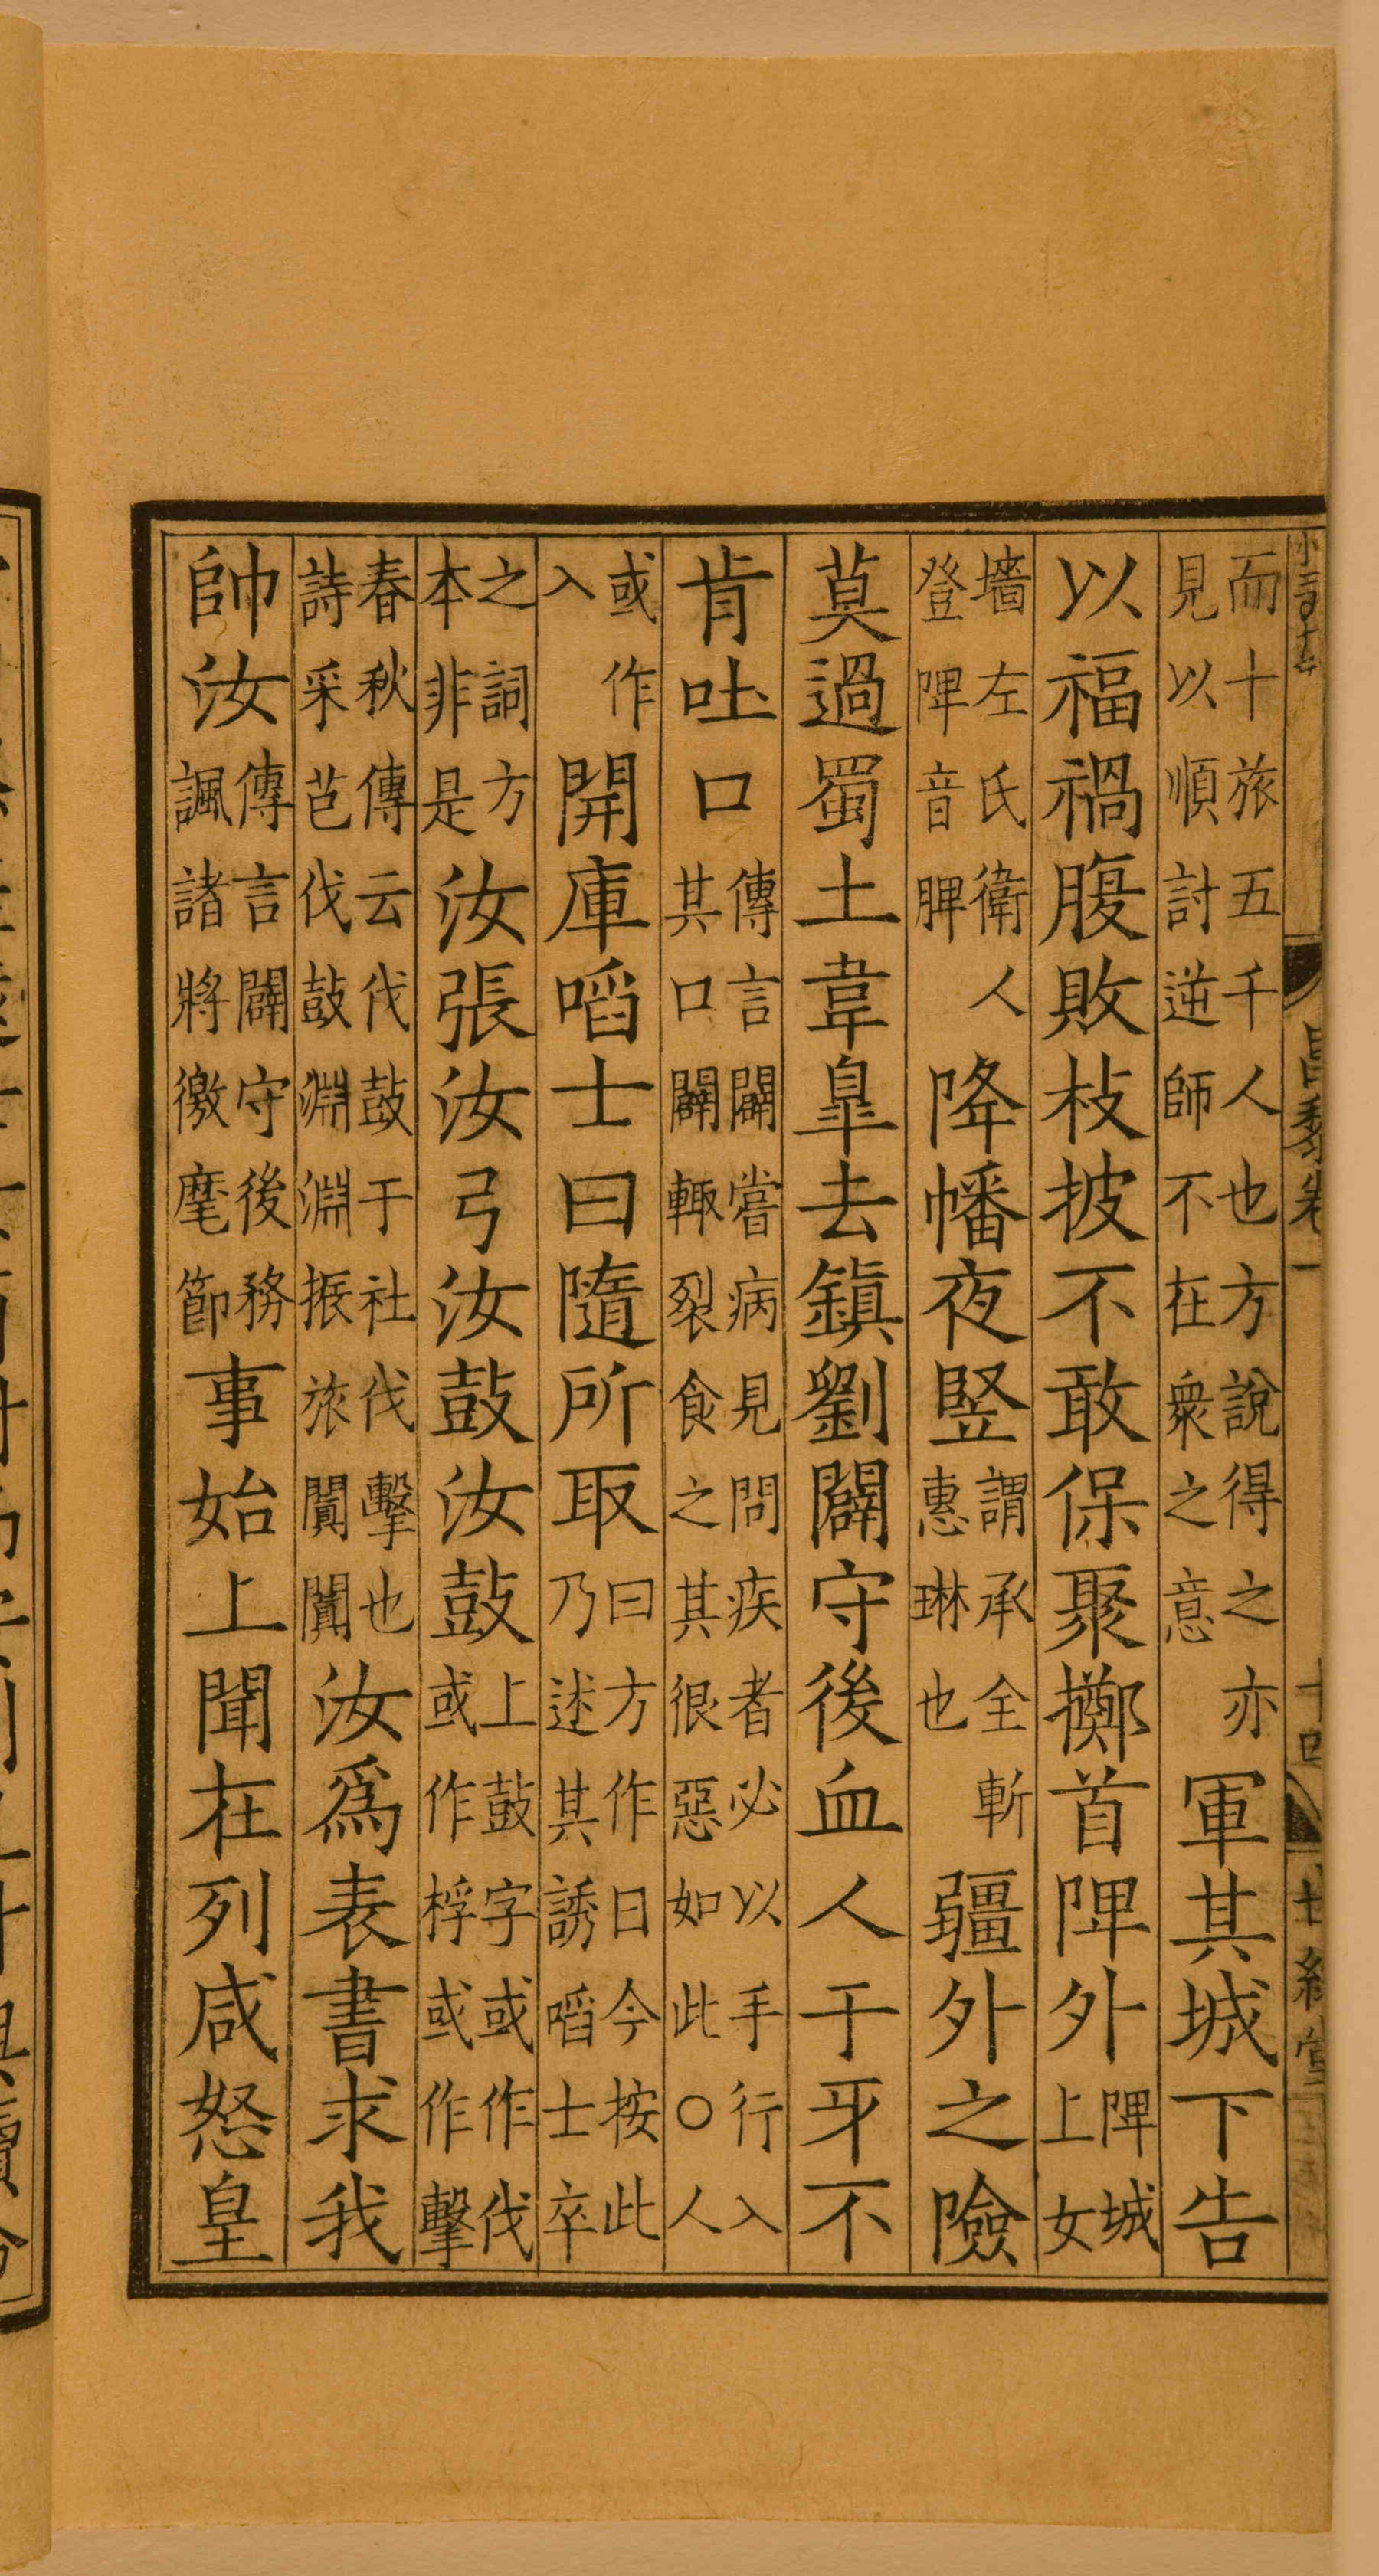 而十旅五千人也方說得之亦
見以順討逆師不在衆之意
軍其城下告
以福禍腹敗枝披不敢保聚擲首陴外
陴城
上女
墻左氏衛人
登陴音脾
降幡夜竪
謂承全斬
惠琳也
疆外之險
莫過蜀土韋臯去鎮劉闢守後血人于牙不
肯吐口
傳言闢嘗病見問疾者必以手行入
其口闢輙裂食之其很惡如此○人
或作
入
開庫啗士曰隨所取
曰方作日今按此
乃述其誘啗士卒
之詞方
本非是
汝張汝弓汝鼓汝鼓
上鼓字或作伐
或作桴或作擊
春秋傳云伐鼓于社伐擊也
詩采芑伐鼓淵淵振旅闐闐
汝爲表書求我
帥汝
傳言闢守後務
諷諸將徼麾節
事始上聞在列咸怒皇
昌黎卷一
十四